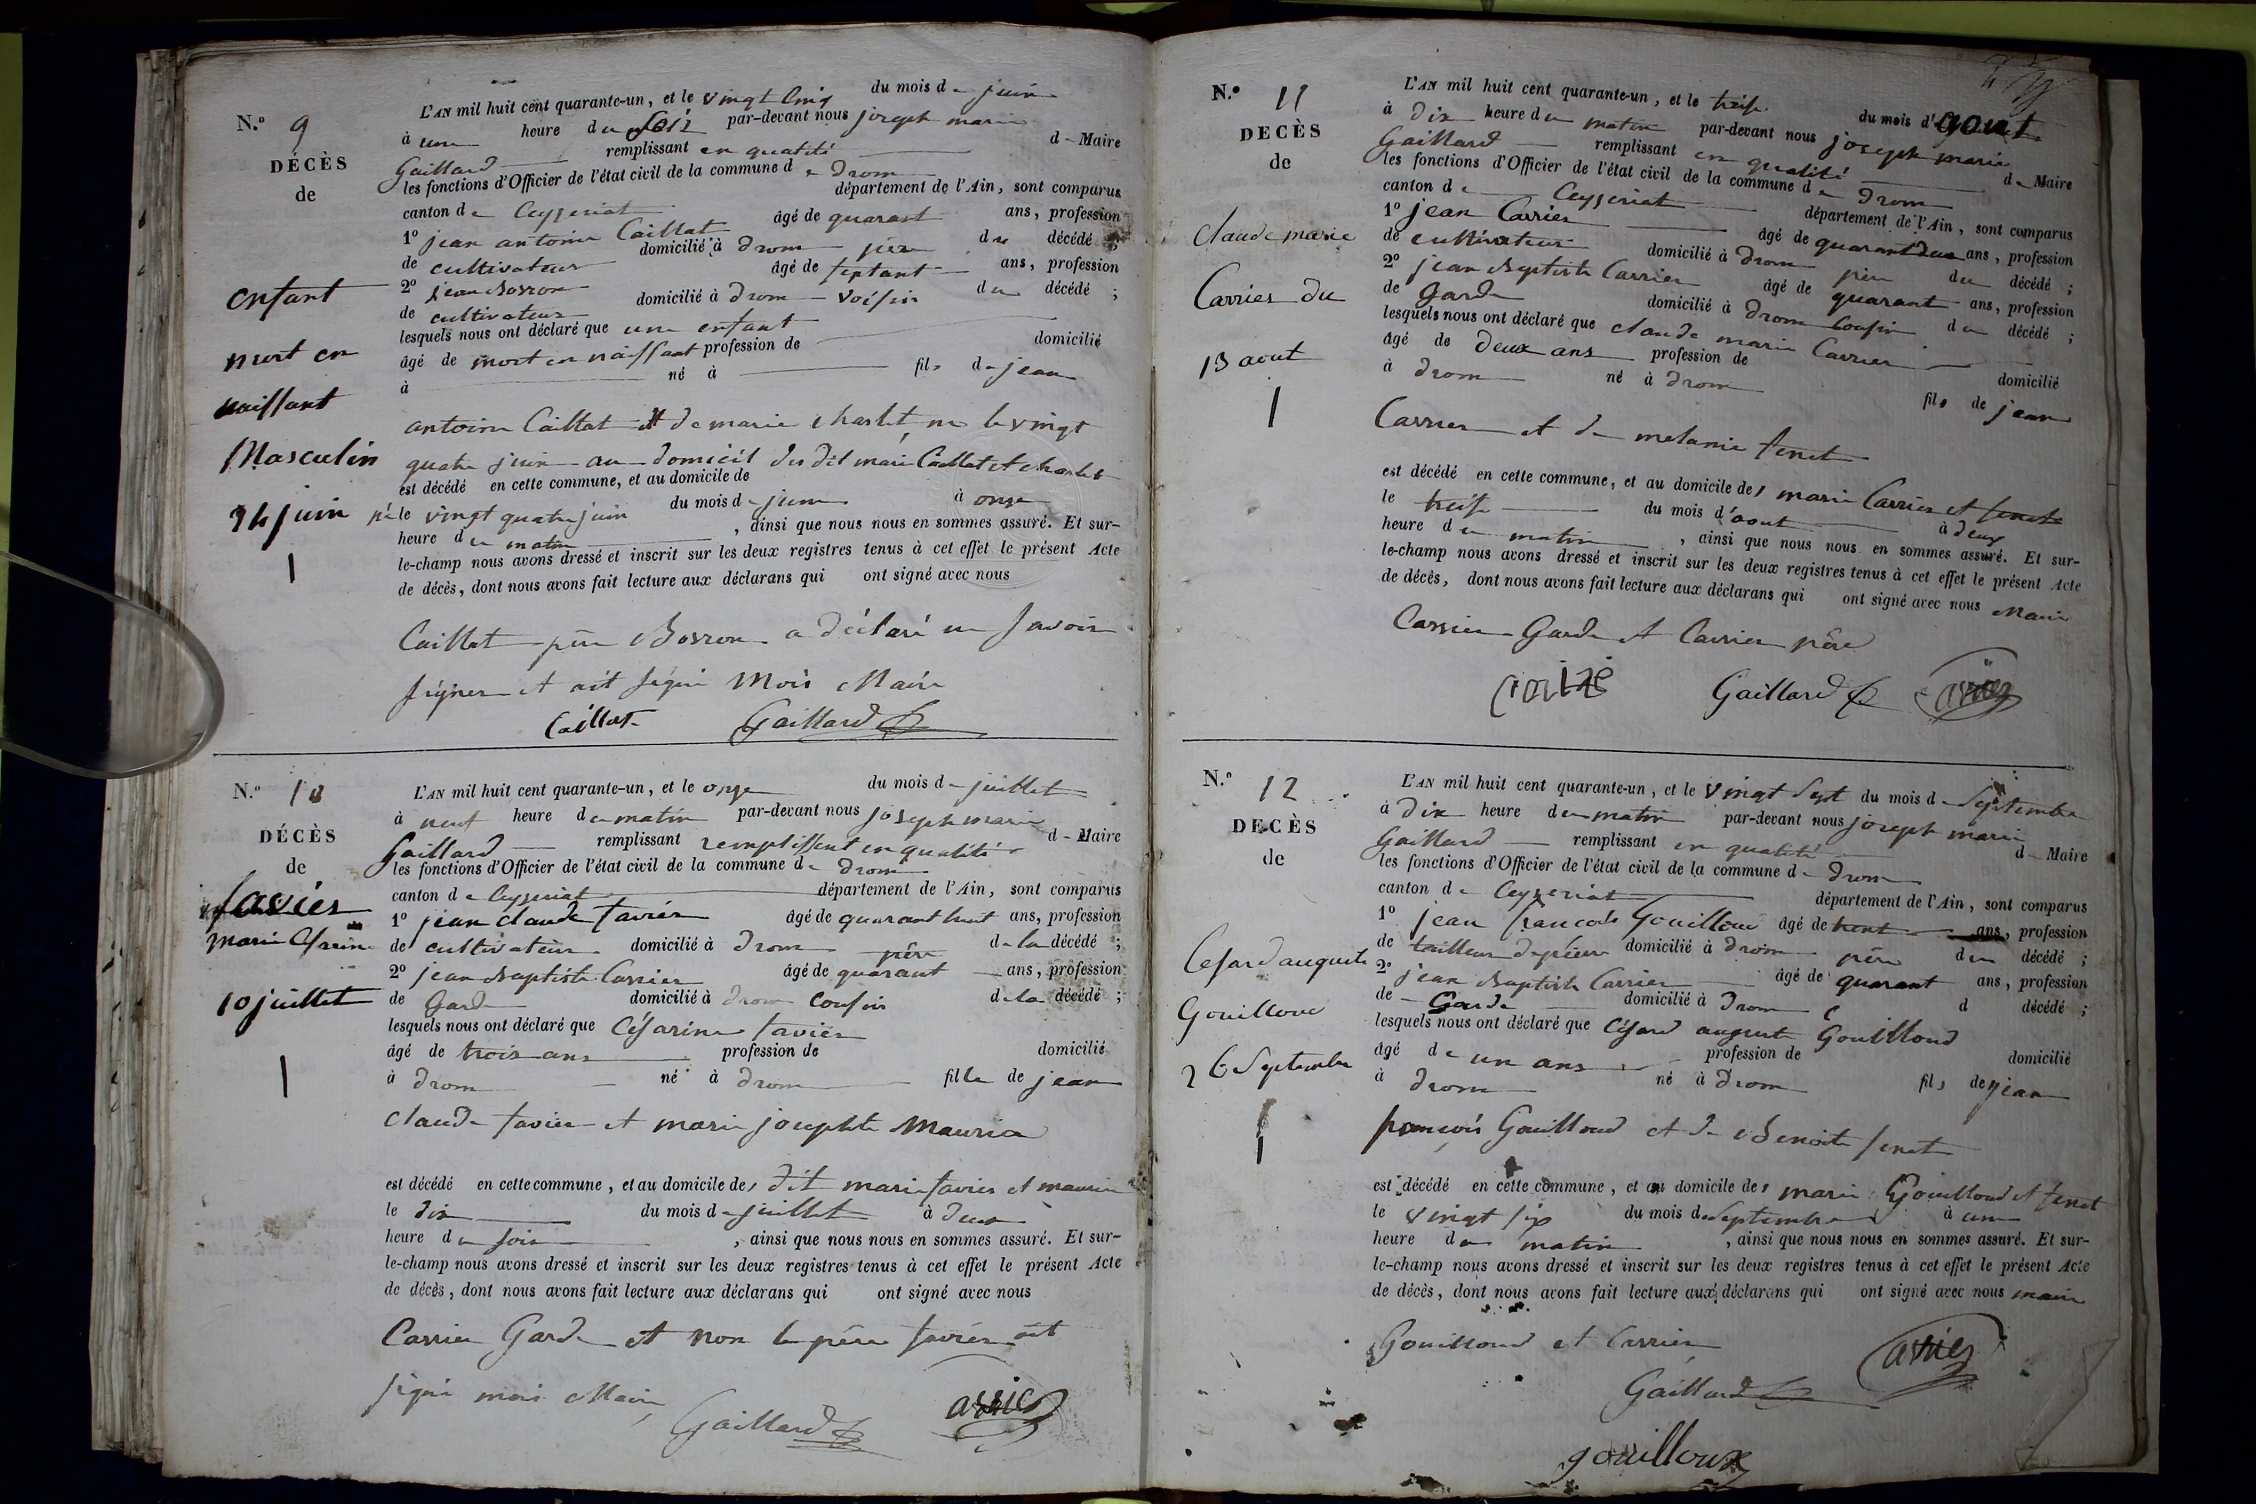 N.o 9
DÉCÈS
de
enfant
mort en
naissant
Masculin
24 juin
L'AN mil huit cent quarante-un, et le vingt cinq du mois de juin
à une heure du soir par-devant nous joseph marie
Gaillard remplissant en qualité de Maire
les fonctions d'Officier de l'état civil de la commune de Drom
canton de Ceyzeriat département de l'Ain, sont comparus
1o jean antoine Caillat âgé de quarant ans, profession
de cultivateur domicilié à Drom père du décédé ;
2o jean Bozron âgé de septant ans, profession
de cultivateur domicilié à Drom voisin du décédé ;
lesquels nous ont déclaré que une enfant
âgé de mort en naissant profession de domicilié
à né à fils de jean
antoine Caillat et de marie charlet né le vingt
quatre juin au domicil des dit marié Caillat et charlet
est décédé en cette commune, et au domicile de
né le vingt quatre juin du mois de juin à onze
heure du matin, ainsi que nous nous en sommes assuré. Et sur-
le-champ nous avons dressé et inscrit sur les deux registres tenus à cet effet le présent Acte
de décès, dont nous avons fait lecture aux déclarans qui ont signé avec nous
Caillat père Bozron a déclaré ne savoir
signer et ait signé Mois Maire
Caillat Gaillard
N.o 10
DÉCÈS
de
favier
marie Césarine
10 juillet
L'AN mil huit cent quarante-un, et le onze du mois de juillet
à neuf heure du matin par-devant nous joseph marie
Gaillard remplissant remplissent en qualité de Maire
les fonctions d'Officier de l'état civil de la commune de Drom
canton de Ceyzeriat département de l'Ain, sont comparus
1o jean claude favier âgé de quarant huit ans, profession
de cultivateur domicilié à Drom père de la décédé ;
2o jean Baptiste Carrier âgé de quarant ans, profession
de Garde domicilié à Drom cousin de la décédé ;
lesquels nous ont déclaré que Césarine favier
âgé de trois ans profession de domicilié
à Drom né à Drom fille de jean
claude favier et marie josephte Maurice
est décédé en cette commune, et au domicile des dit marie favier et maurice
le dix du mois de juillet à deux
heure du soir, ainsi que nous nous en sommes assuré. Et sur-
le-champ nous avons dressé et inscrit sur les deux registres tenus à cet effet le présent Acte
de décès, dont nous avons fait lecture aux déclarans qui ont signé avec nous
Carrier Garde et non le père favier ait
signé mois Maire
Gaillard
N.o 11
DECÈS
de
claude marie
Carrier du
13 aout
L'AN mil huit cent quarante-un, et le treise du mois d'aout
à dix heure du matin par-devant nous joseph marie
Gaillard remplissant en qualité de Maire
les fonctions d'Officier de l'état civil de la commune de Drom
canton de Ceyzeriat département de l'Ain, sont comparus
1o jean Carrier âgé de quarant deux ans, profession
de cultivateur domicilié à Drom père du décédé ;
2o jean Baptiste Carrier âgé de quarant ans, profession
de Garde domicilié à Drom cousin du décédé ;
lesquels nous ont déclaré que claude marie Carrier
âgé de deux ans profession de domicilié
à Drom né à Drom fils de jean
Carrier et de melanie fenet
est décédé en cette commune, et au domicile des marie Carrier et fenet
le treise du mois d'aout à deux
heure du matin, ainsi que nous nous en sommes assuré. Et sur-
le-champ nous avons dressé et inscrit sur les deux registres tenus à cet effet le présent Acte
de décès, dont nous avons fait lecture aux déclarans qui ont signé avec nous Maire
Carrier Garde et Carrier père
Gaillard
N.o 12
DECÈS
de
Cesard auguste
Gouilloud
26 Septembre
L'AN mil huit cent quarante-un, et le vingt Sept du mois de Septembre
à dix heure du matin par-devant nous joseph marie
Gaillard remplissant en qualité de Maire
les fonctions d'Officier de l'état civil de la commune de Drom
canton de Ceyzeriat département de l'Ain, sont comparus
1o jean francois Gouilloud âgé de trent ans, profession
de tailleur de pierre domicilié à Drom père du décédé ;
2o jean Baptiste Carrier âgé de quarant ans, profession
de Garde domicilié à Drom d décédé ;
lesquels nous ont déclaré que Césard auguste Gouilloud
âgé de un ans profession de domicilié
à Drom né à Drom fils de jean
françois Gouilloud et de Benoite fenet
est décédé en cette commune, et au domicile des marie Gouilloud et fenet
le vingt six du mois de Septembre à une
heure du matin, ainsi que nous nous en sommes assuré. Et sur-
le-champ nous avons dressé et inscrit sur les deux registres tenus à cet effet le présent Acte
de décès, dont nous avons fait lecture aux déclarans qui ont signé avec nous maire
Gouilloud et Carrier
Gaillard
gouilloux